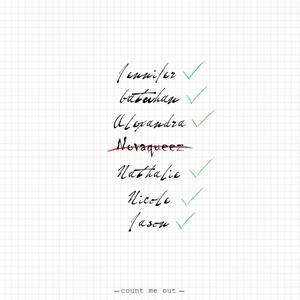 Jennifer
Gatewhan
Alexandra
Novaqueez
Nathalie
Nicole
Jason
—count me out—